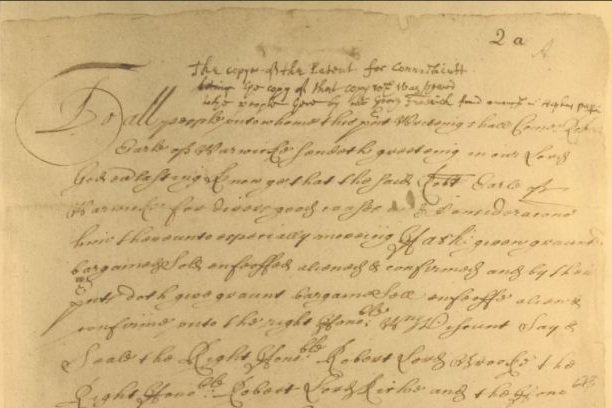 2 a
The copye of the Patent for Connecticutt
being the copy of that copy wch was
to the people here by mr George Fenwick found amongst mr Hopkins papers
To all people unto whome this pnt Writeing shall Come Robert
Earle of Warwicke sendeth greeteing in our Lord
God everlasting Know ye that the said Robt Earle of
Warwicke for divers good causes & Consideracons
him thereunto especially moveing Hath given graunted
bargained Sold enfeoffed aliened & confirmed and by these
pnts doth give graunt bargaine Sell enfeoffe aliene &
confirme unto the right Honble Wm Viscount Say &
Seale the Right Honble Robert Lord Brooke the
Right Honble Robert Lord Rich and the Hono